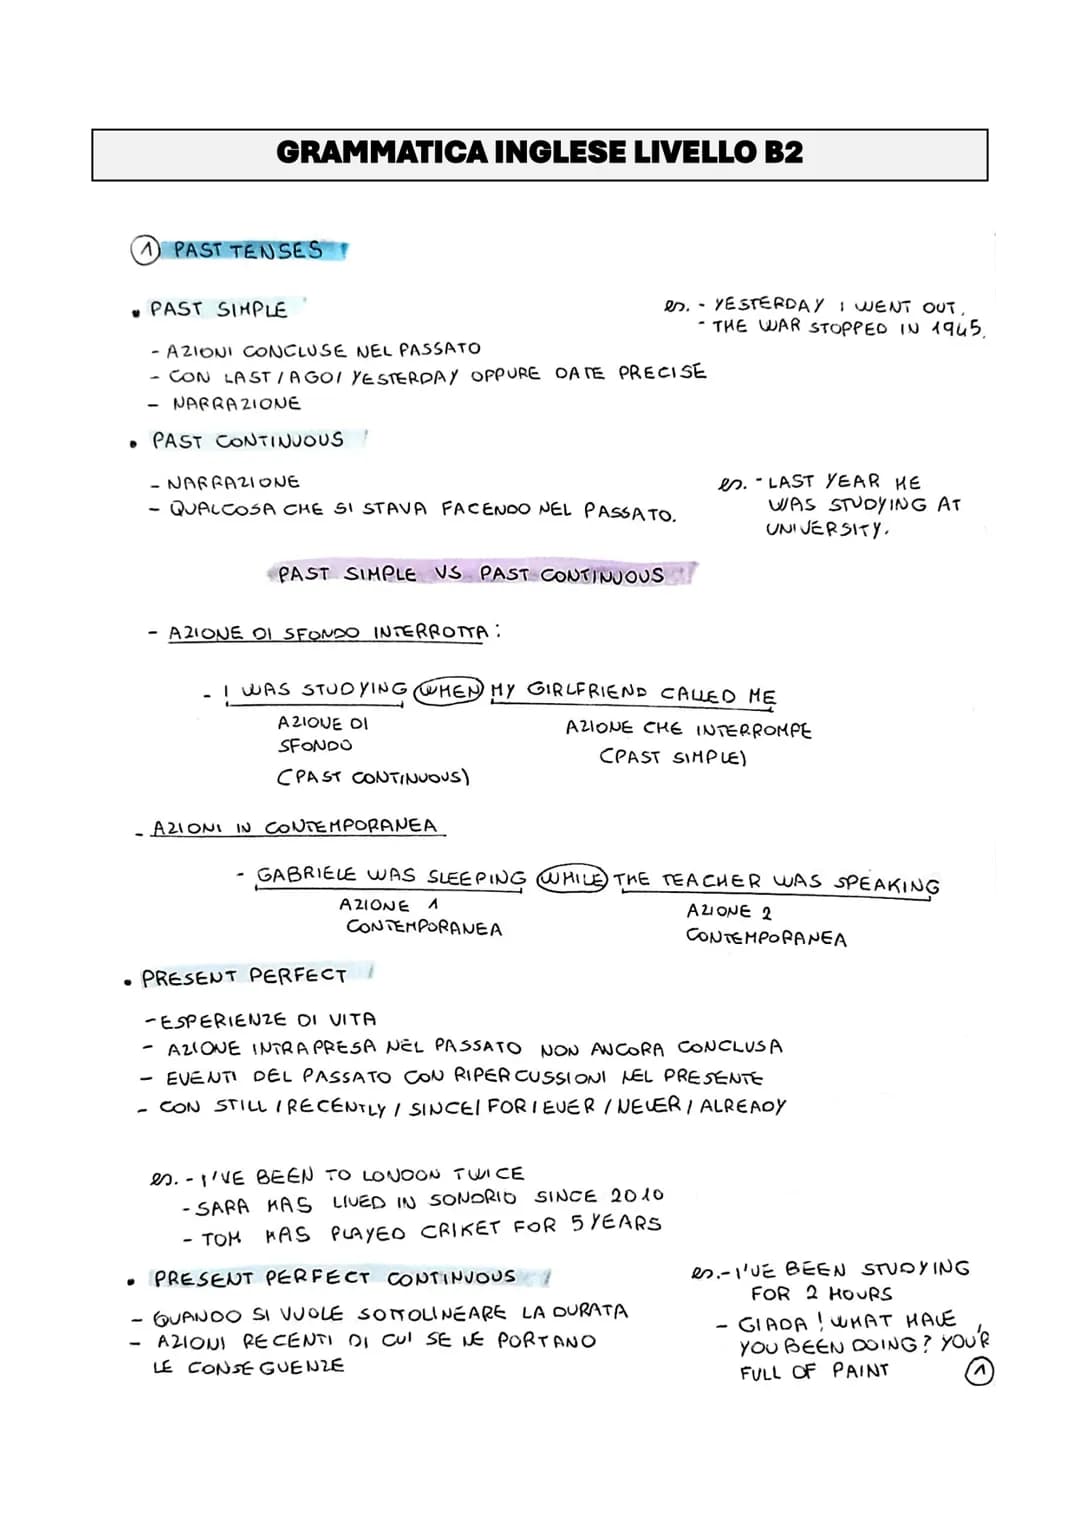 GRAMMATICA INGLESE LIVELLO B2
1 PAST TENSES
• PAST SIMPLE
es. - YESTERDAY I WENT OUT.
- THE WAR STOPPED IN 1945.
- AZIONI CONCLUSE NEL PASSATO
- CON LAST / AGO / YESTERDAY OPPURE DATE PRECISE
- NARRAZIONE
• PAST CONTINUOUS
- NARRAZIONE
- QUALCOSA CHE SI STAVA FACENDO NEL PASSATO.
es. - LAST YEAR HE
WAS STUDYING AT
UNIVERSITY.
PAST SIMPLE VS PAST CONTINUOUS
- AZIONE DI SFONDO INTERROTTA:
- I WAS STUDYING WHEN MY GIRLFRIEND CALLED ME
AZIONE DI
SFONDO
(PAST CONTINUOUS)
AZIONE CHE INTERROMPE
(PAST SIMPLE)
- AZIONI IN CONTEMPORANEA
- GABRIELE WAS SLEEPING WHILE THE TEACHER WAS SPEAKING
AZIONE 1
CONTEMPORANEA
AZIONE 2
CONTEMPORANEA
• PRESENT PERFECT
- ESPERIENZE DI VITA
- AZIONE INTRAPRESA NEL PASSATO NON ANCORA CONCLUSA
- EVENTI DEL PASSATO CON RIPERCUSSIONI NEL PRESENTE
- CON STILL / RECENTLY / SINCE / FOR / EVER / NEVER / ALREADY
es. - I'VE BEEN TO LONDON TWICE
- SARA HAS LIVED IN SONDRIO SINCE 2010
- TOM HAS PLAYED CRIKET FOR 5 YEARS
• PRESENT PERFECT CONTINUOUS
- QUANDO SI VUOLE SOTTOLINEARE LA DURATA
- AZIONI RECENTI DI CUI SE NE PORTANO
LE CONSEGUENZE
es. - I'VE BEEN STUDYING
FOR 2 HOURS
- GIADA! WHAT HAVE
YOU BEEN DOING? YOU'R
FULL OF PAINT
1